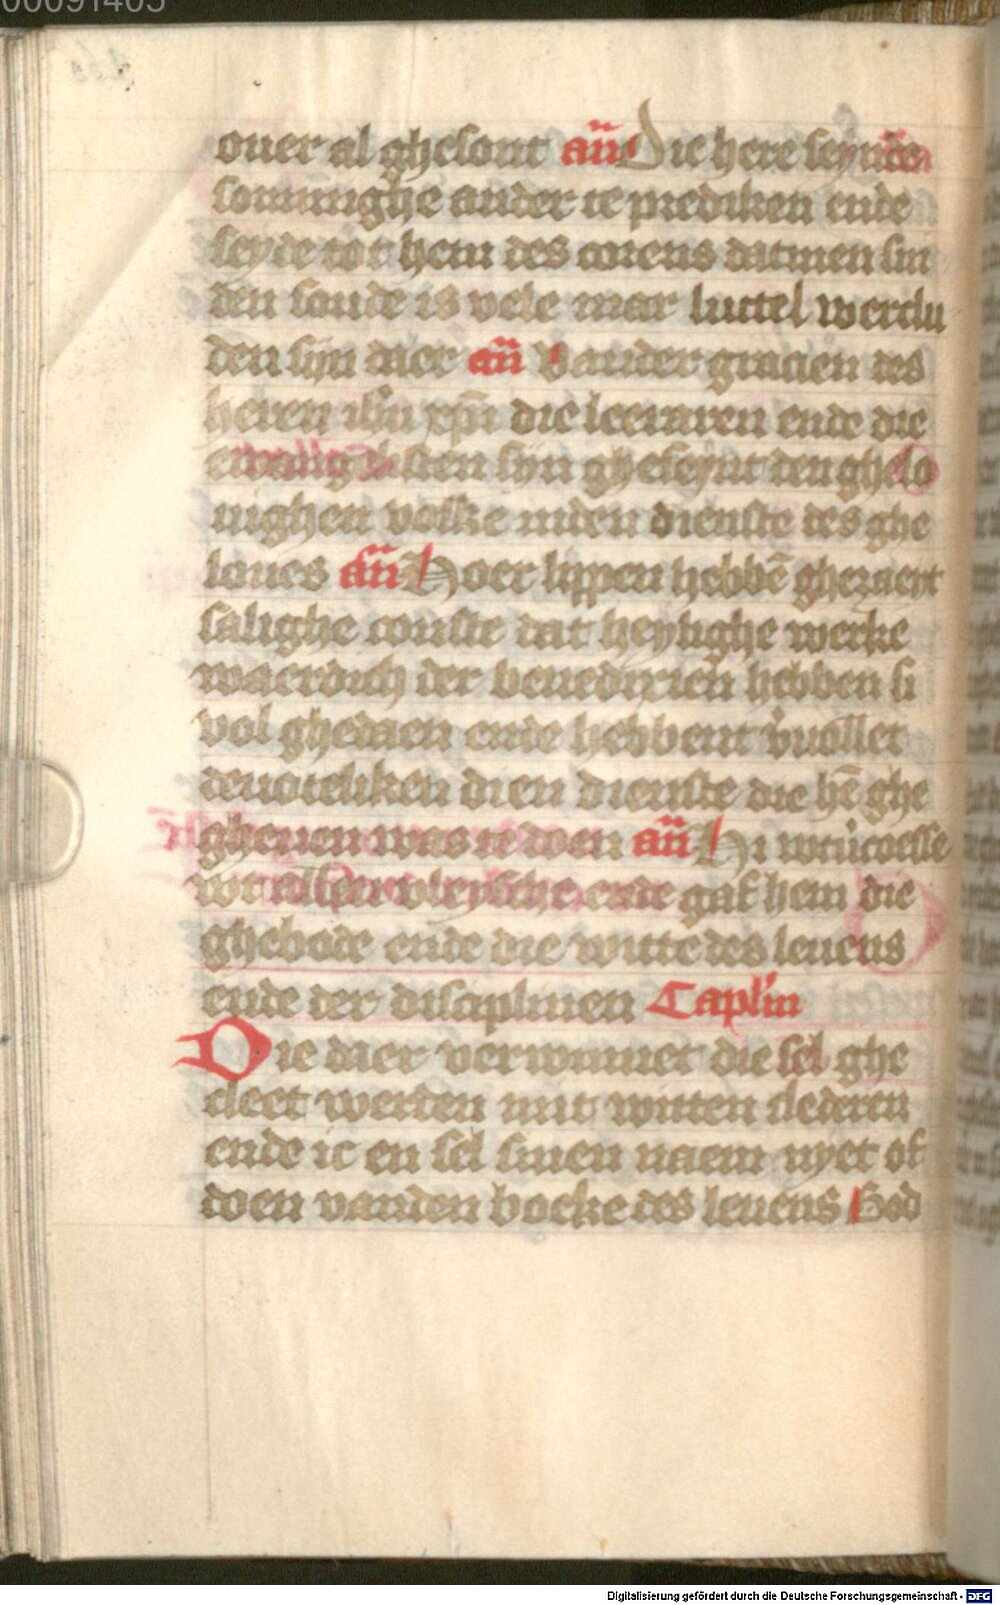 00091405
ouer al ghesont an̄ Die here seynde
sommighe ander te prediken ende
seyde tot hem des corens datmen sin
den soude is vele mar luttel werclu
den sijn daer an̄ Vander gracien des
heren ihū xp̄i die leeraren ende die
ewangelisten sijn gheseynt den ghelo
uighen volke inden dienste des ghe
loues an̄ Hoer lippen hebbē ghezaeyt
salighe conste dat heylighe werke
waerdich der benedixien hebben si
vol ghedaen ende hebbent vuollet
deuoteliken dien dienste die hē ghe
gheuen was te doen an̄ Hi wtůcoesse
wt allen vleysche ende gaf hem die
ghebode ende die witte des leuens
ende der disciplinen Caplm̄
Die daer verwinnet die sel ghe
cleet werden mit witten clederen
ende ic en sel sinen naem nyet of
doen vanden boeke des leuens God
Digitalisierung gefördert durch die Deutsche Forschungsgemeinschaft - DFG